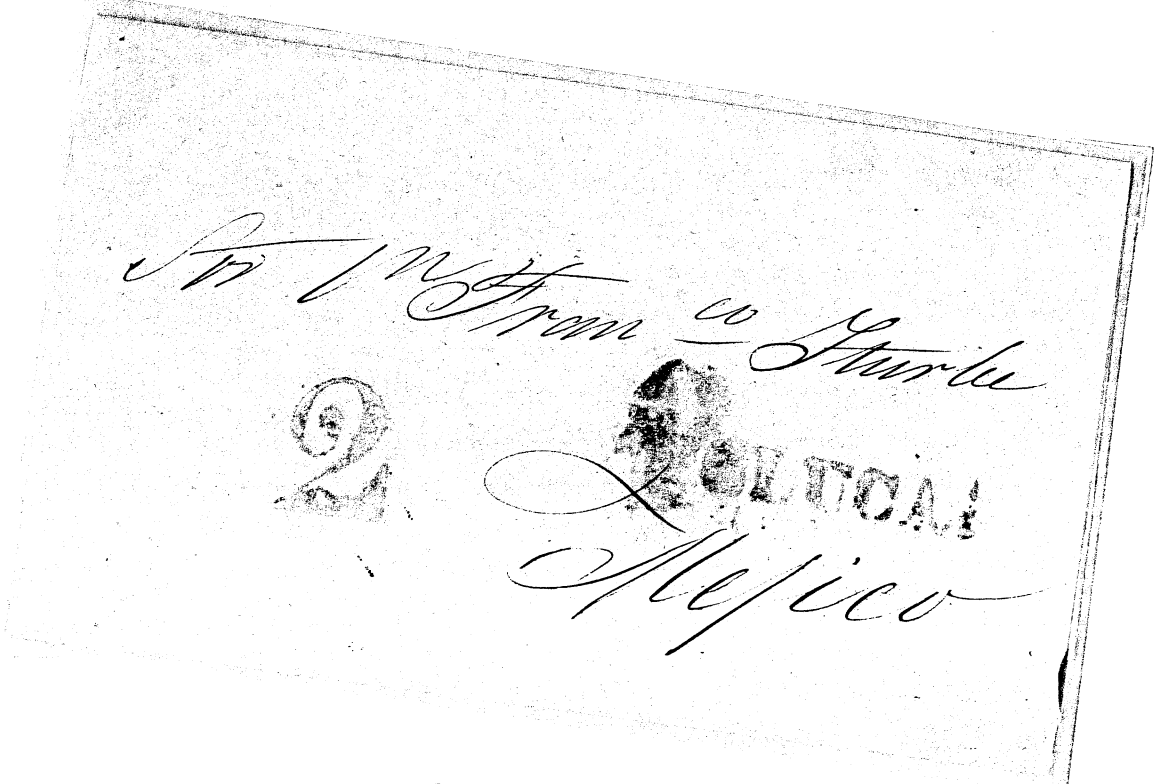 Sor Dn Franco Yturbe
2
TOLUCA
Mejico